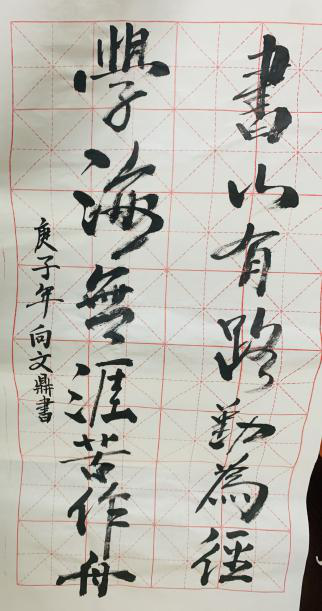 書山有路勤為徑
學海無涯苦作舟
庚子年向文鼎書